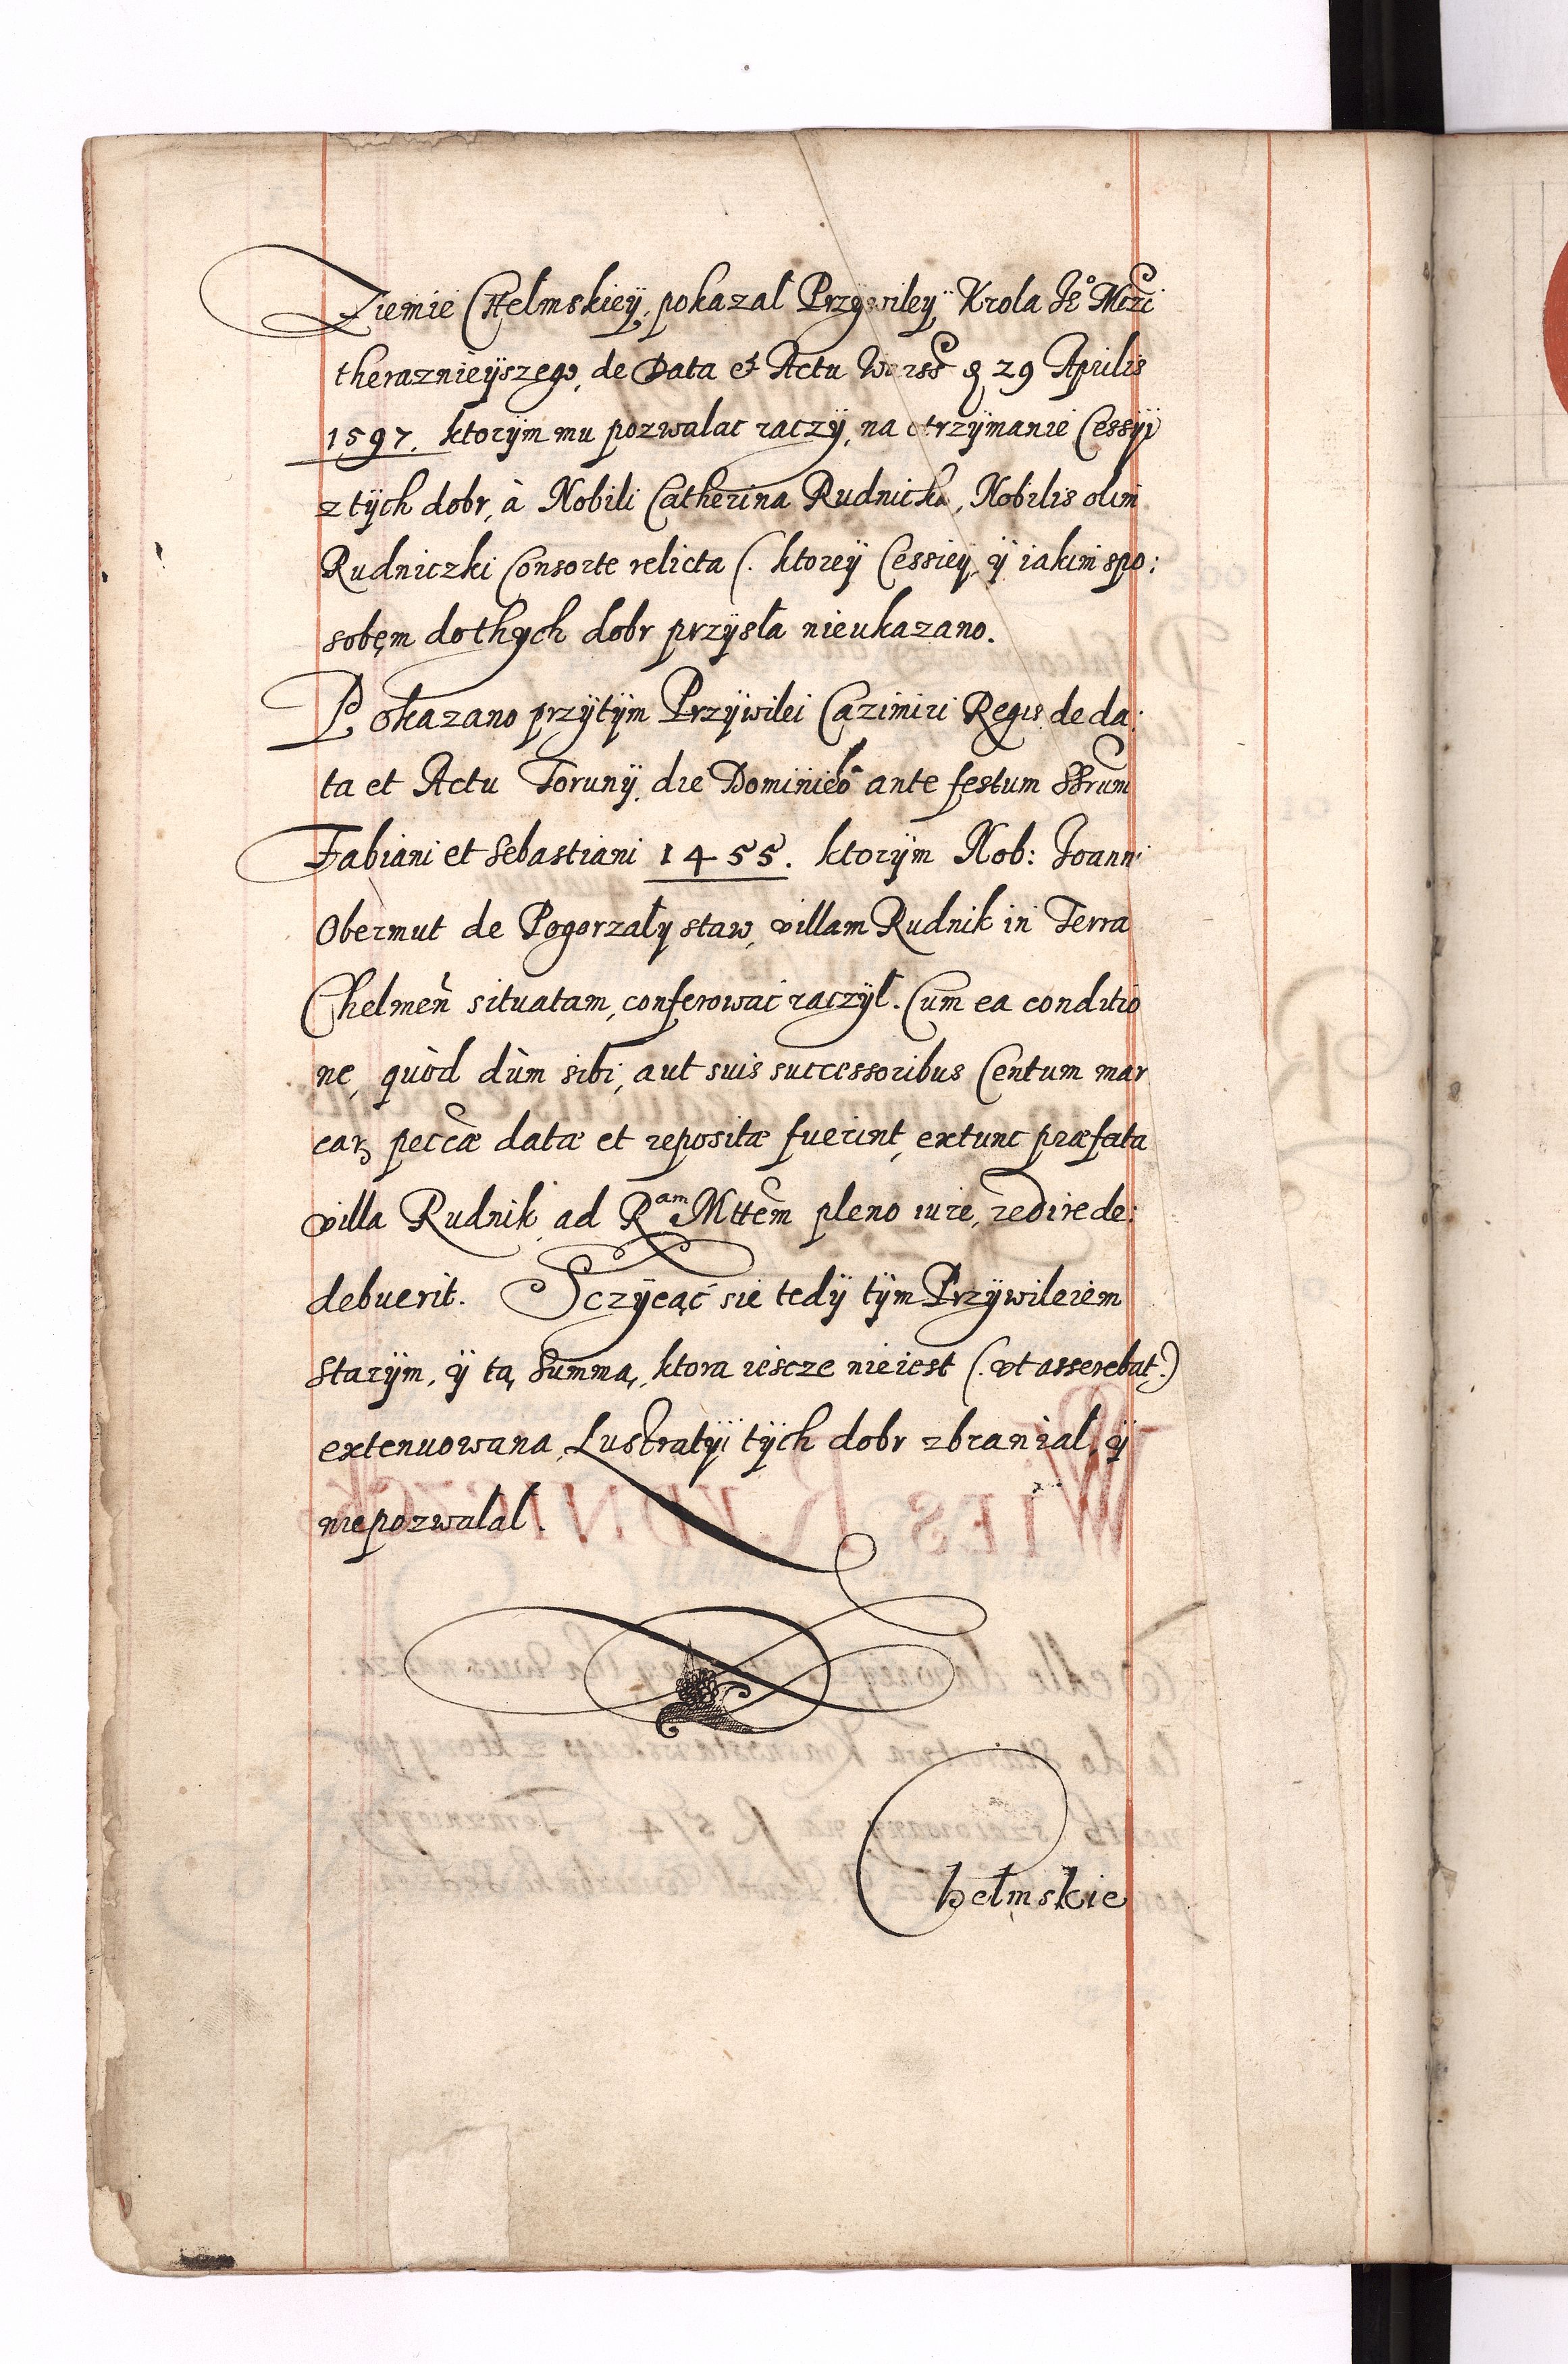 Ziemie CHełmskieÿ, pokazał Przÿwileÿ Krola Je° Mczi
theraznieÿszego, de Data et Actu Warss 29 Aprilis
1597. ktorÿm mu pozwalac raczÿ, na otrzÿmanie Cessÿÿ
z tÿch dobr, à Nobili Catherina Rudnicka, Nobilis olim
Rudniczki Consorte relicta (. ktoreÿ Cessieÿ, ÿ iakim spo:
sobęm do thych dobr przÿsła nieukazano.
Pokazano przÿtÿm Przÿwilei Cazimiri Regis de da:
ta et Actu Torunÿ, die Dominico ante festum SSrum
Fabiani et Sebastiani 1455. ktorÿm Nob: Joanni
Obermut de Pogorzały staw, villam Rudnik in Terra
Chelmen̄ situatam, conferowac raczÿł. Cum ea conditio
ne, quòd dùm sibi, aut suis successoribus Centum mar
carꝫ peccæ datæ et repositæ fuerint, extunc præfata
villa Rudnik, ad Ram Mttem pleno iure, redire de:
debuerit. Sczÿcąć sie tedÿ tÿm Przÿwileiem
starÿm, ÿ tą Summą, ktora iescze nieiest (. vt asserebat.)
extenuowana, Lustratÿi tÿch dobr zbraniał, ÿ
niepozwalał.
Chełmskie